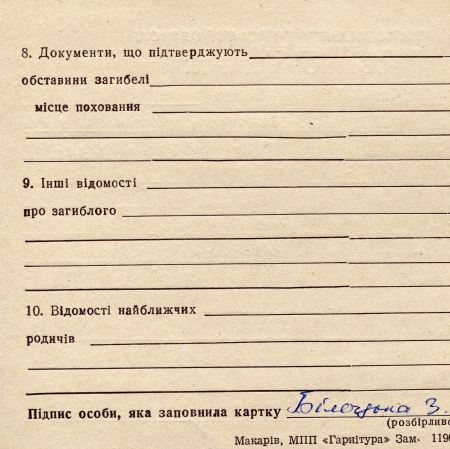 8. Документи, що підтверджують
обставини загибелі
місце поховання
9. Інші відомості
про загиблого
10. Відомості найближчих
родичів
Підпис особи, яка заповнила картку Білецька З.
(розбірливо
Макарів, МПП «Гарнітура» Зам. 1190